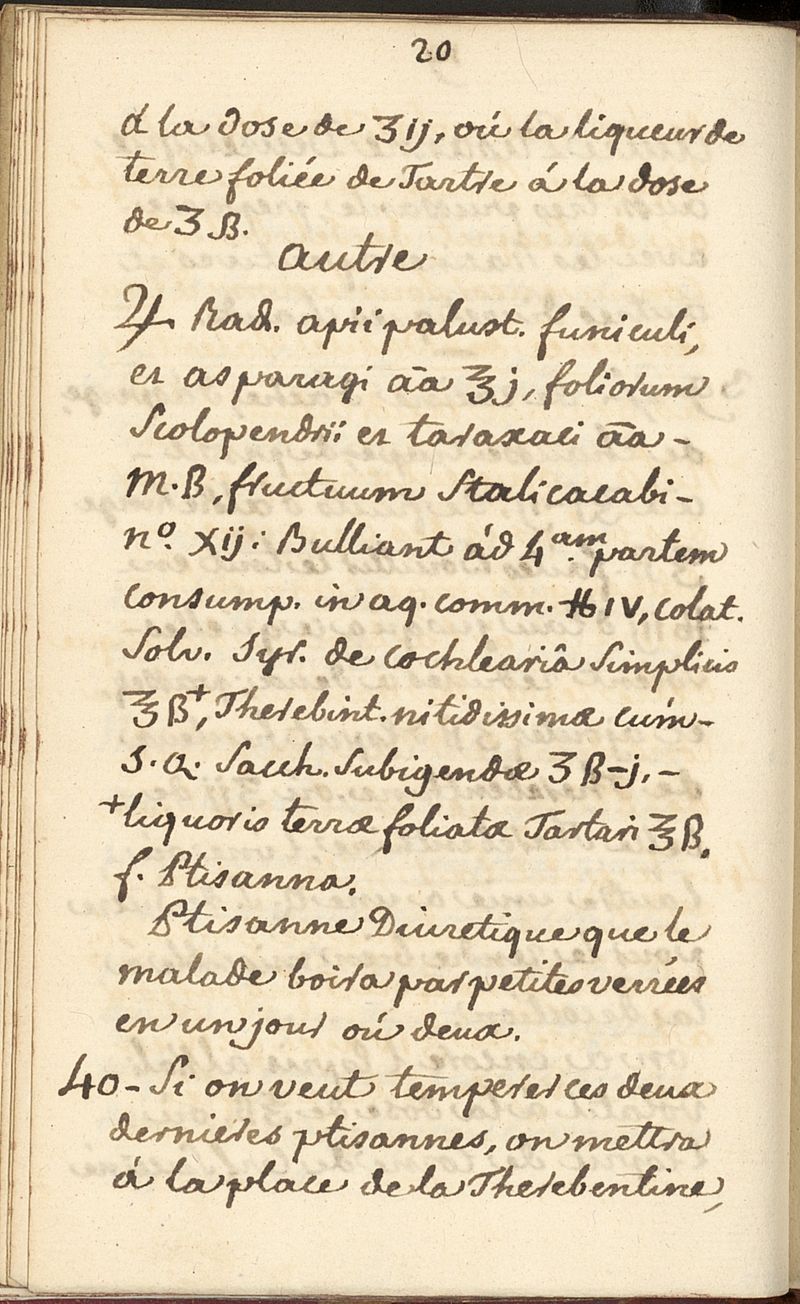 20
á la dose de ʒ ij, oú la liqueur de
terre foliée de Tartre á la dose
de ʒ ß.
autre
♃ Rad. apii palust. funiculi,
et asparagi āa ℥ j, foliorum
Scolopendrii et taraxaci āa -
M. ß, fructuum Stalicacabi -
nº. xij: Bulliant ád 4am. partem
consump. in aq. comm. ℔ IV, colat.
Solv. Syr. de cochleariâ Simplicis
℥ ß+, Therebint. nitidissimæ cúm -
s. a. Sacch. Subigendæ ʒ ß-j, -
+liquoris terræ foliatæ Tartari ℥ ß.
f. Ptisanna.
Ptisanne Diuretique que le
malade boira par petites verrées
en un jour oú deux.
40 - Si on veut temperer ces deux
dernieres ptisannes, on mettra
á la place de la Therebentine,